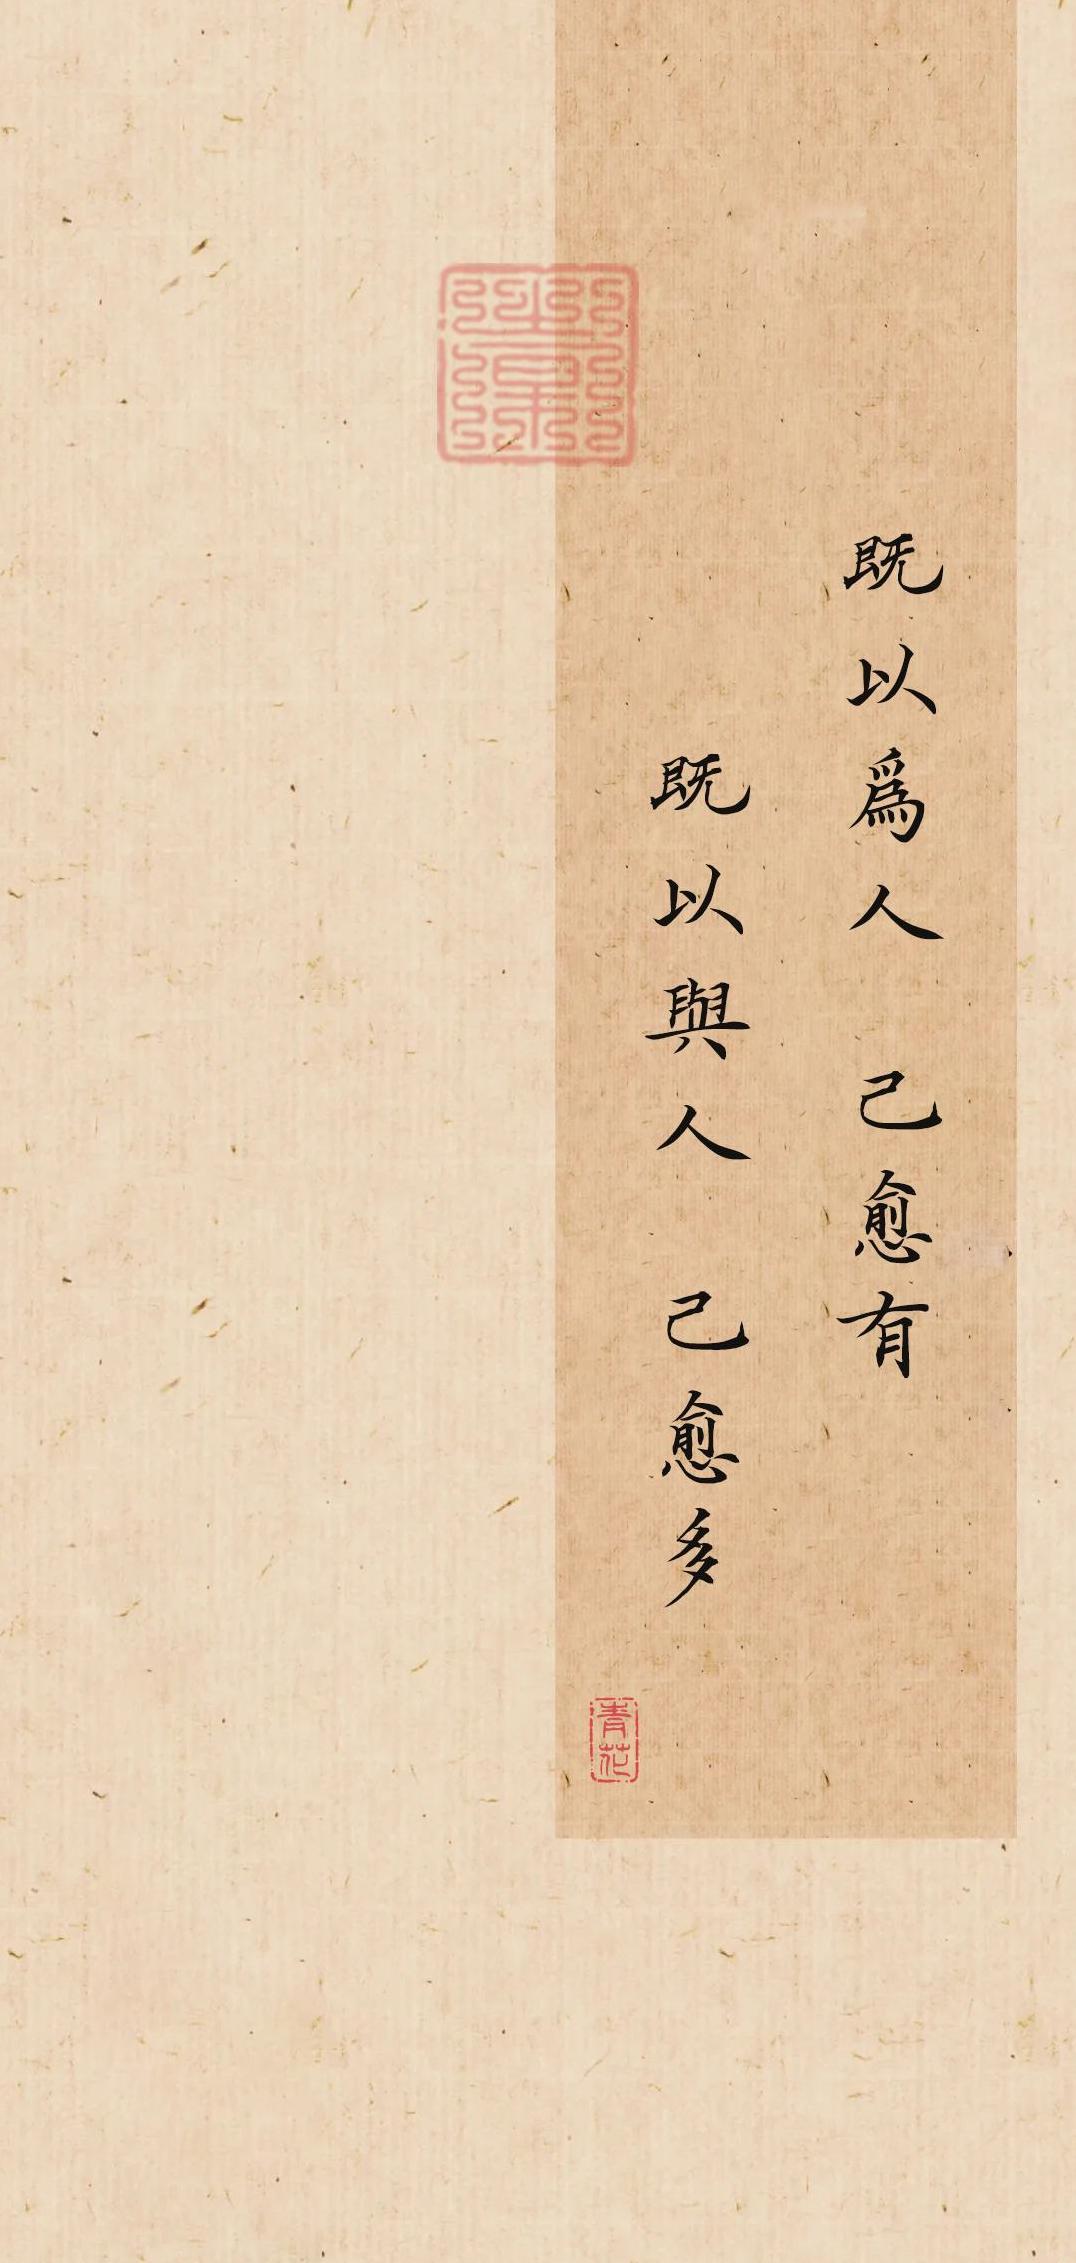 既以爲人 己愈有
既以與人 己愈多
青花